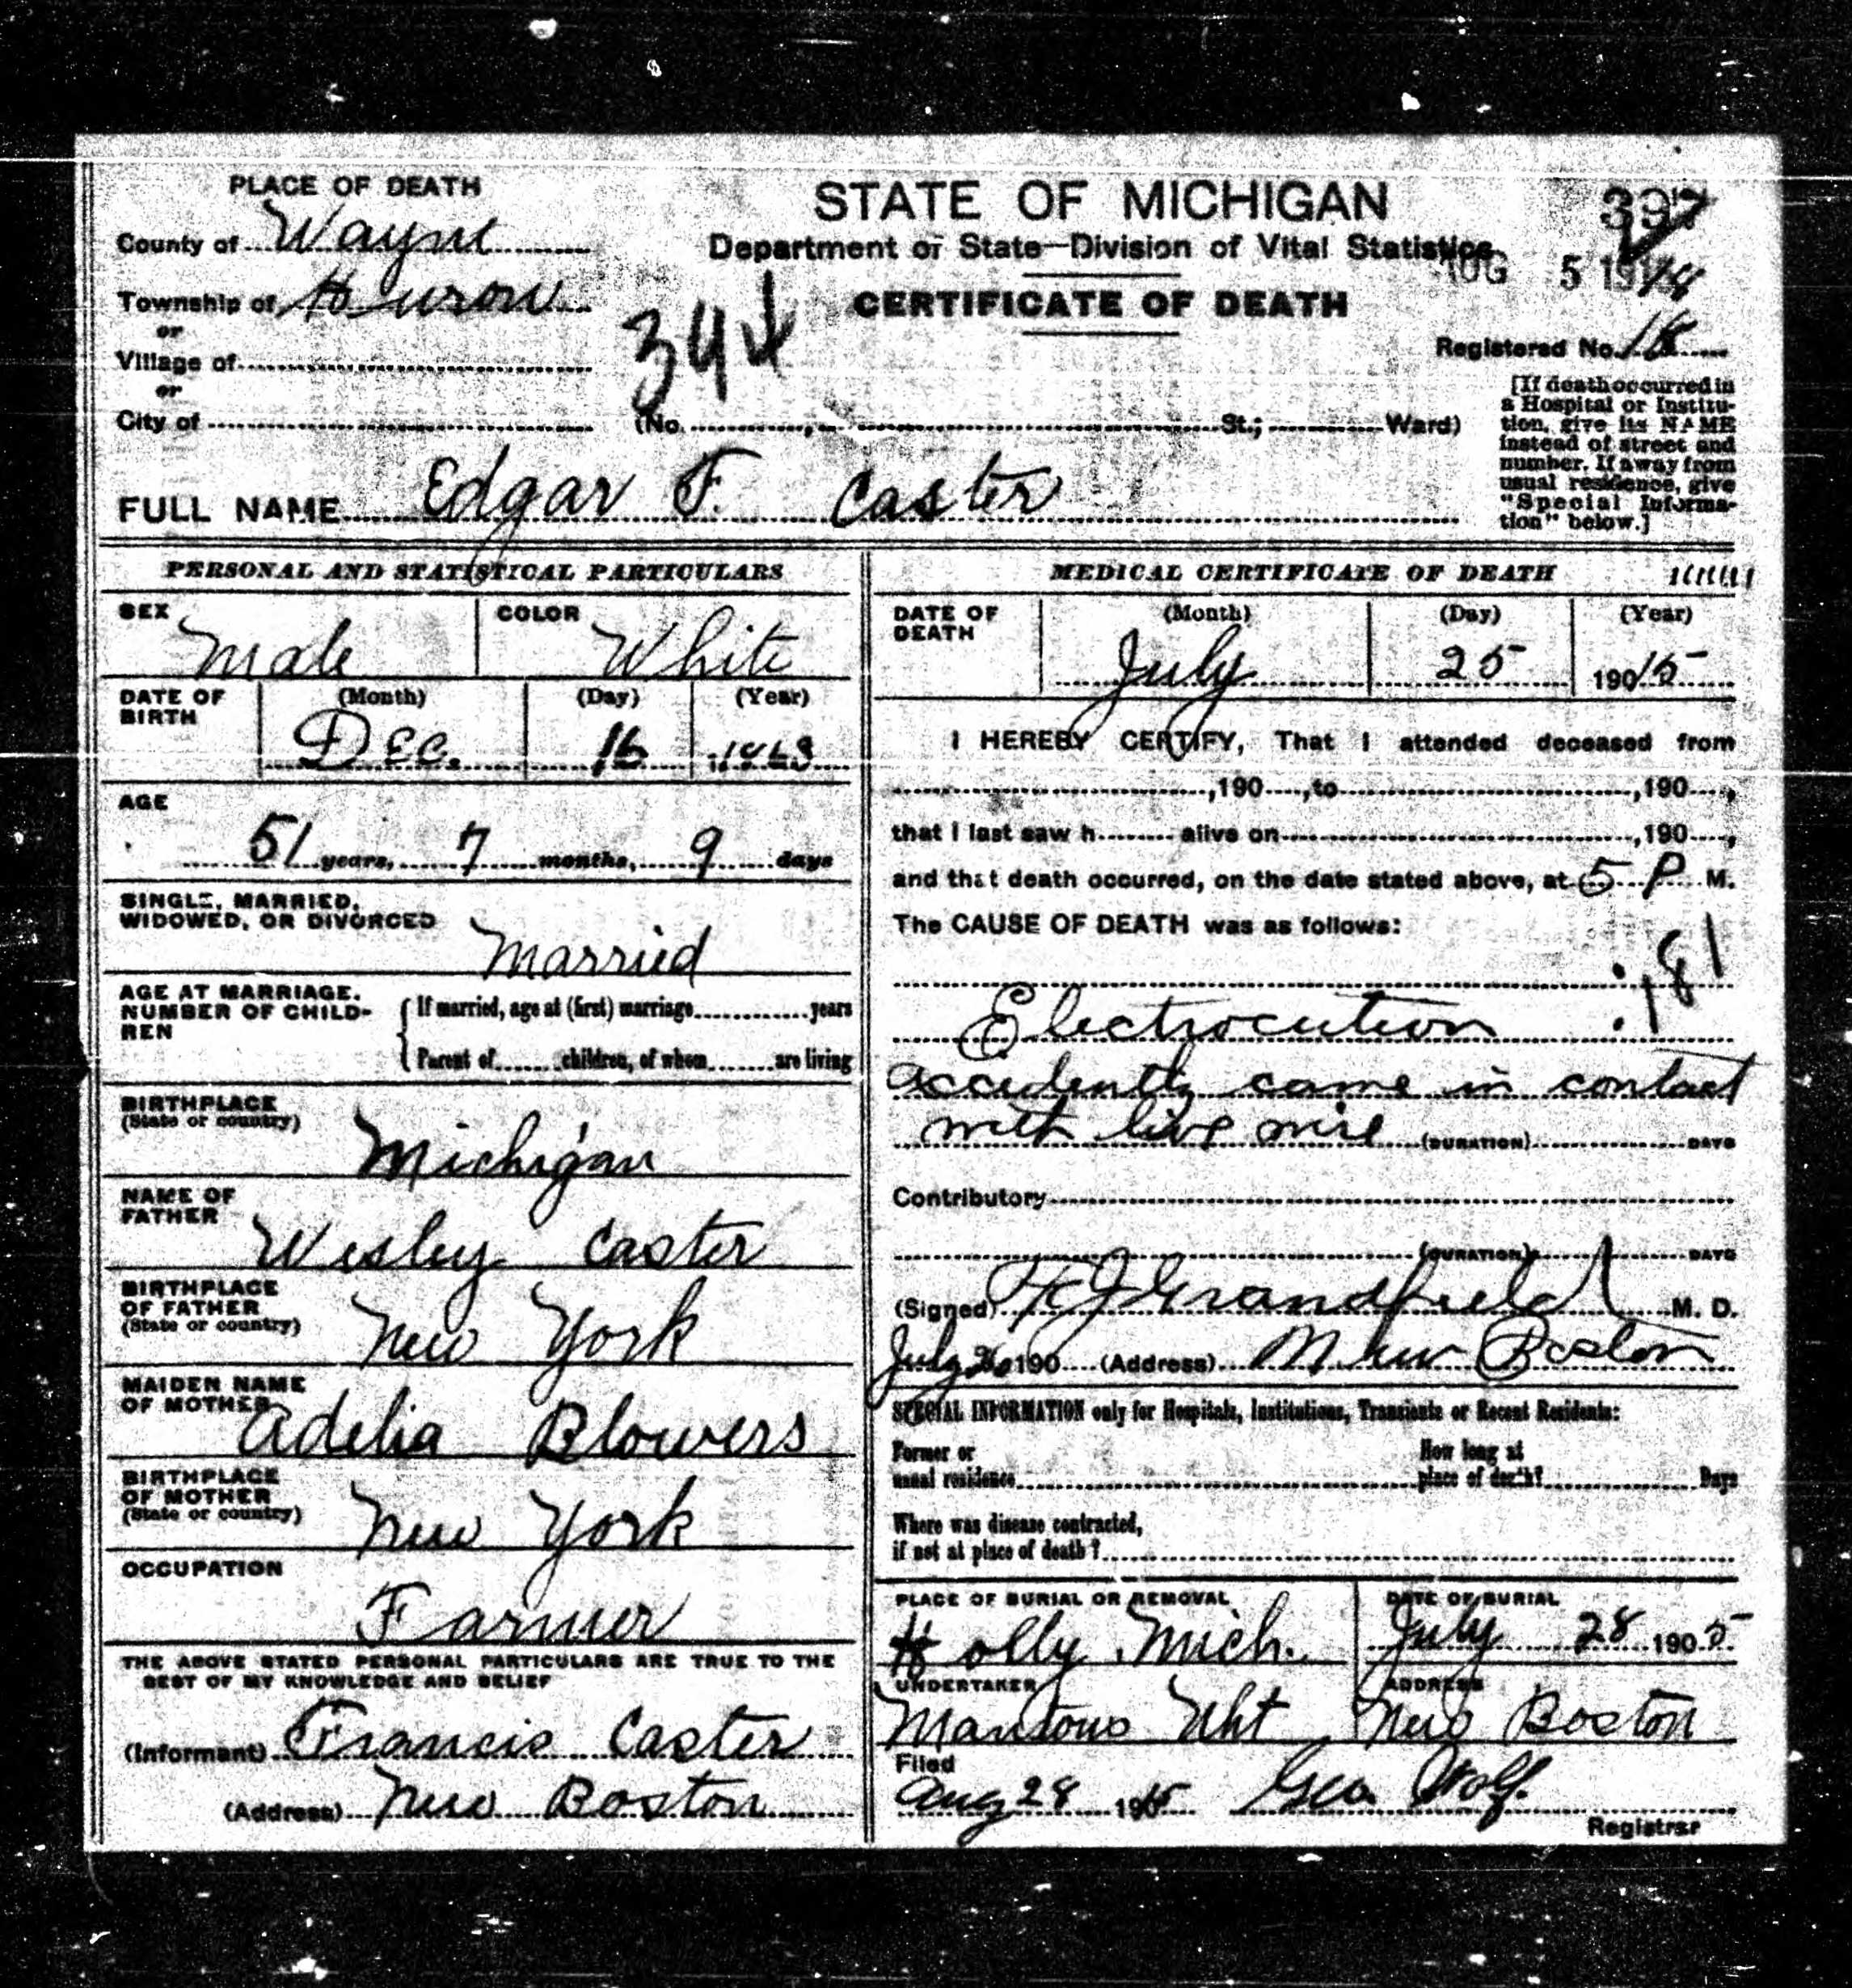 PLACE OF DEATH
County of Wayne
Township of Huron
or
Village of
or
City of
STATE OF MICHIGAN
Department of State—Division of Vital Statistics
CERTIFICATE OF DEATH
397
AUG 5 19
394
Registered No.
(No. , St.; Ward)
[If death occurred in
a Hospital or Institu-
tion, give its NAME
instead of street and
number. If away from
usual residence, give
"Special Informa-
tion" below.]
FULL NAME Edgar F. Caster
PERSONAL AND STATISTICAL PARTICULARS
SEX Male COLOR White
DATE OF BIRTH (Month) Dec. (Day) 16 (Year) 1863
AGE
51 years, 7 months, 9 days
SINGLE, MARRIED,
WIDOWED, OR DIVORCED Married
AGE AT MARRIAGE,
NUMBER OF CHILD-
REN
If married, age at (first) marriage years
Parent of children, of whom are living
BIRTHPLACE
(State or country) Michigan
NAME OF
FATHER Wesley Caster
BIRTHPLACE
OF FATHER
(State or country) New York
MAIDEN NAME
OF MOTHER Adelia Blowers
BIRTHPLACE
OF MOTHER
(State or country) New York
OCCUPATION
Farmer
THE ABOVE STATED PERSONAL PARTICULARS ARE TRUE TO THE
BEST OF MY KNOWLEDGE AND BELIEF
(Informant) Francis Caster
(Address) New Boston
MEDICAL CERTIFICATE OF DEATH
DATE OF DEATH (Month) July (Day) 25 (Year) 19015
I HEREBY CERTIFY, That I attended deceased from
,190 , to ,190 ,
that I last saw h alive on ,190 ,
and that death occurred, on the date stated above, at 5 P M.
The CAUSE OF DEATH was as follows:
181
Electrocution
accidently came in contact
with live wire (DURATION) DAYS
Contributory
(DURATION) DAYS
(Signed) Grandfield M. D.
July 26 190 (Address) New Boston
SPECIAL INFORMATION only for Hospitals, Institutions, Transients or Recent Residents:
Former or
usual residence
How long at
place of death? Days
Where was disease contracted,
if not at place of death?
PLACE OF BURIAL OR REMOVAL
Holly Mich.
DATE OF BURIAL
July 28 1905
UNDERTAKER
ADDRESS
New Boston
Filed
Aug 28 1915 Geo Wolf.
Registrar